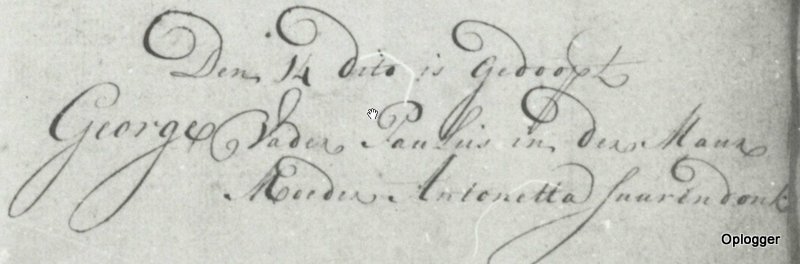 Den 14 dito is gedoopt
George Vader Paulus in der Maur
Moeder Antonetta Suurendonk
Oplogger